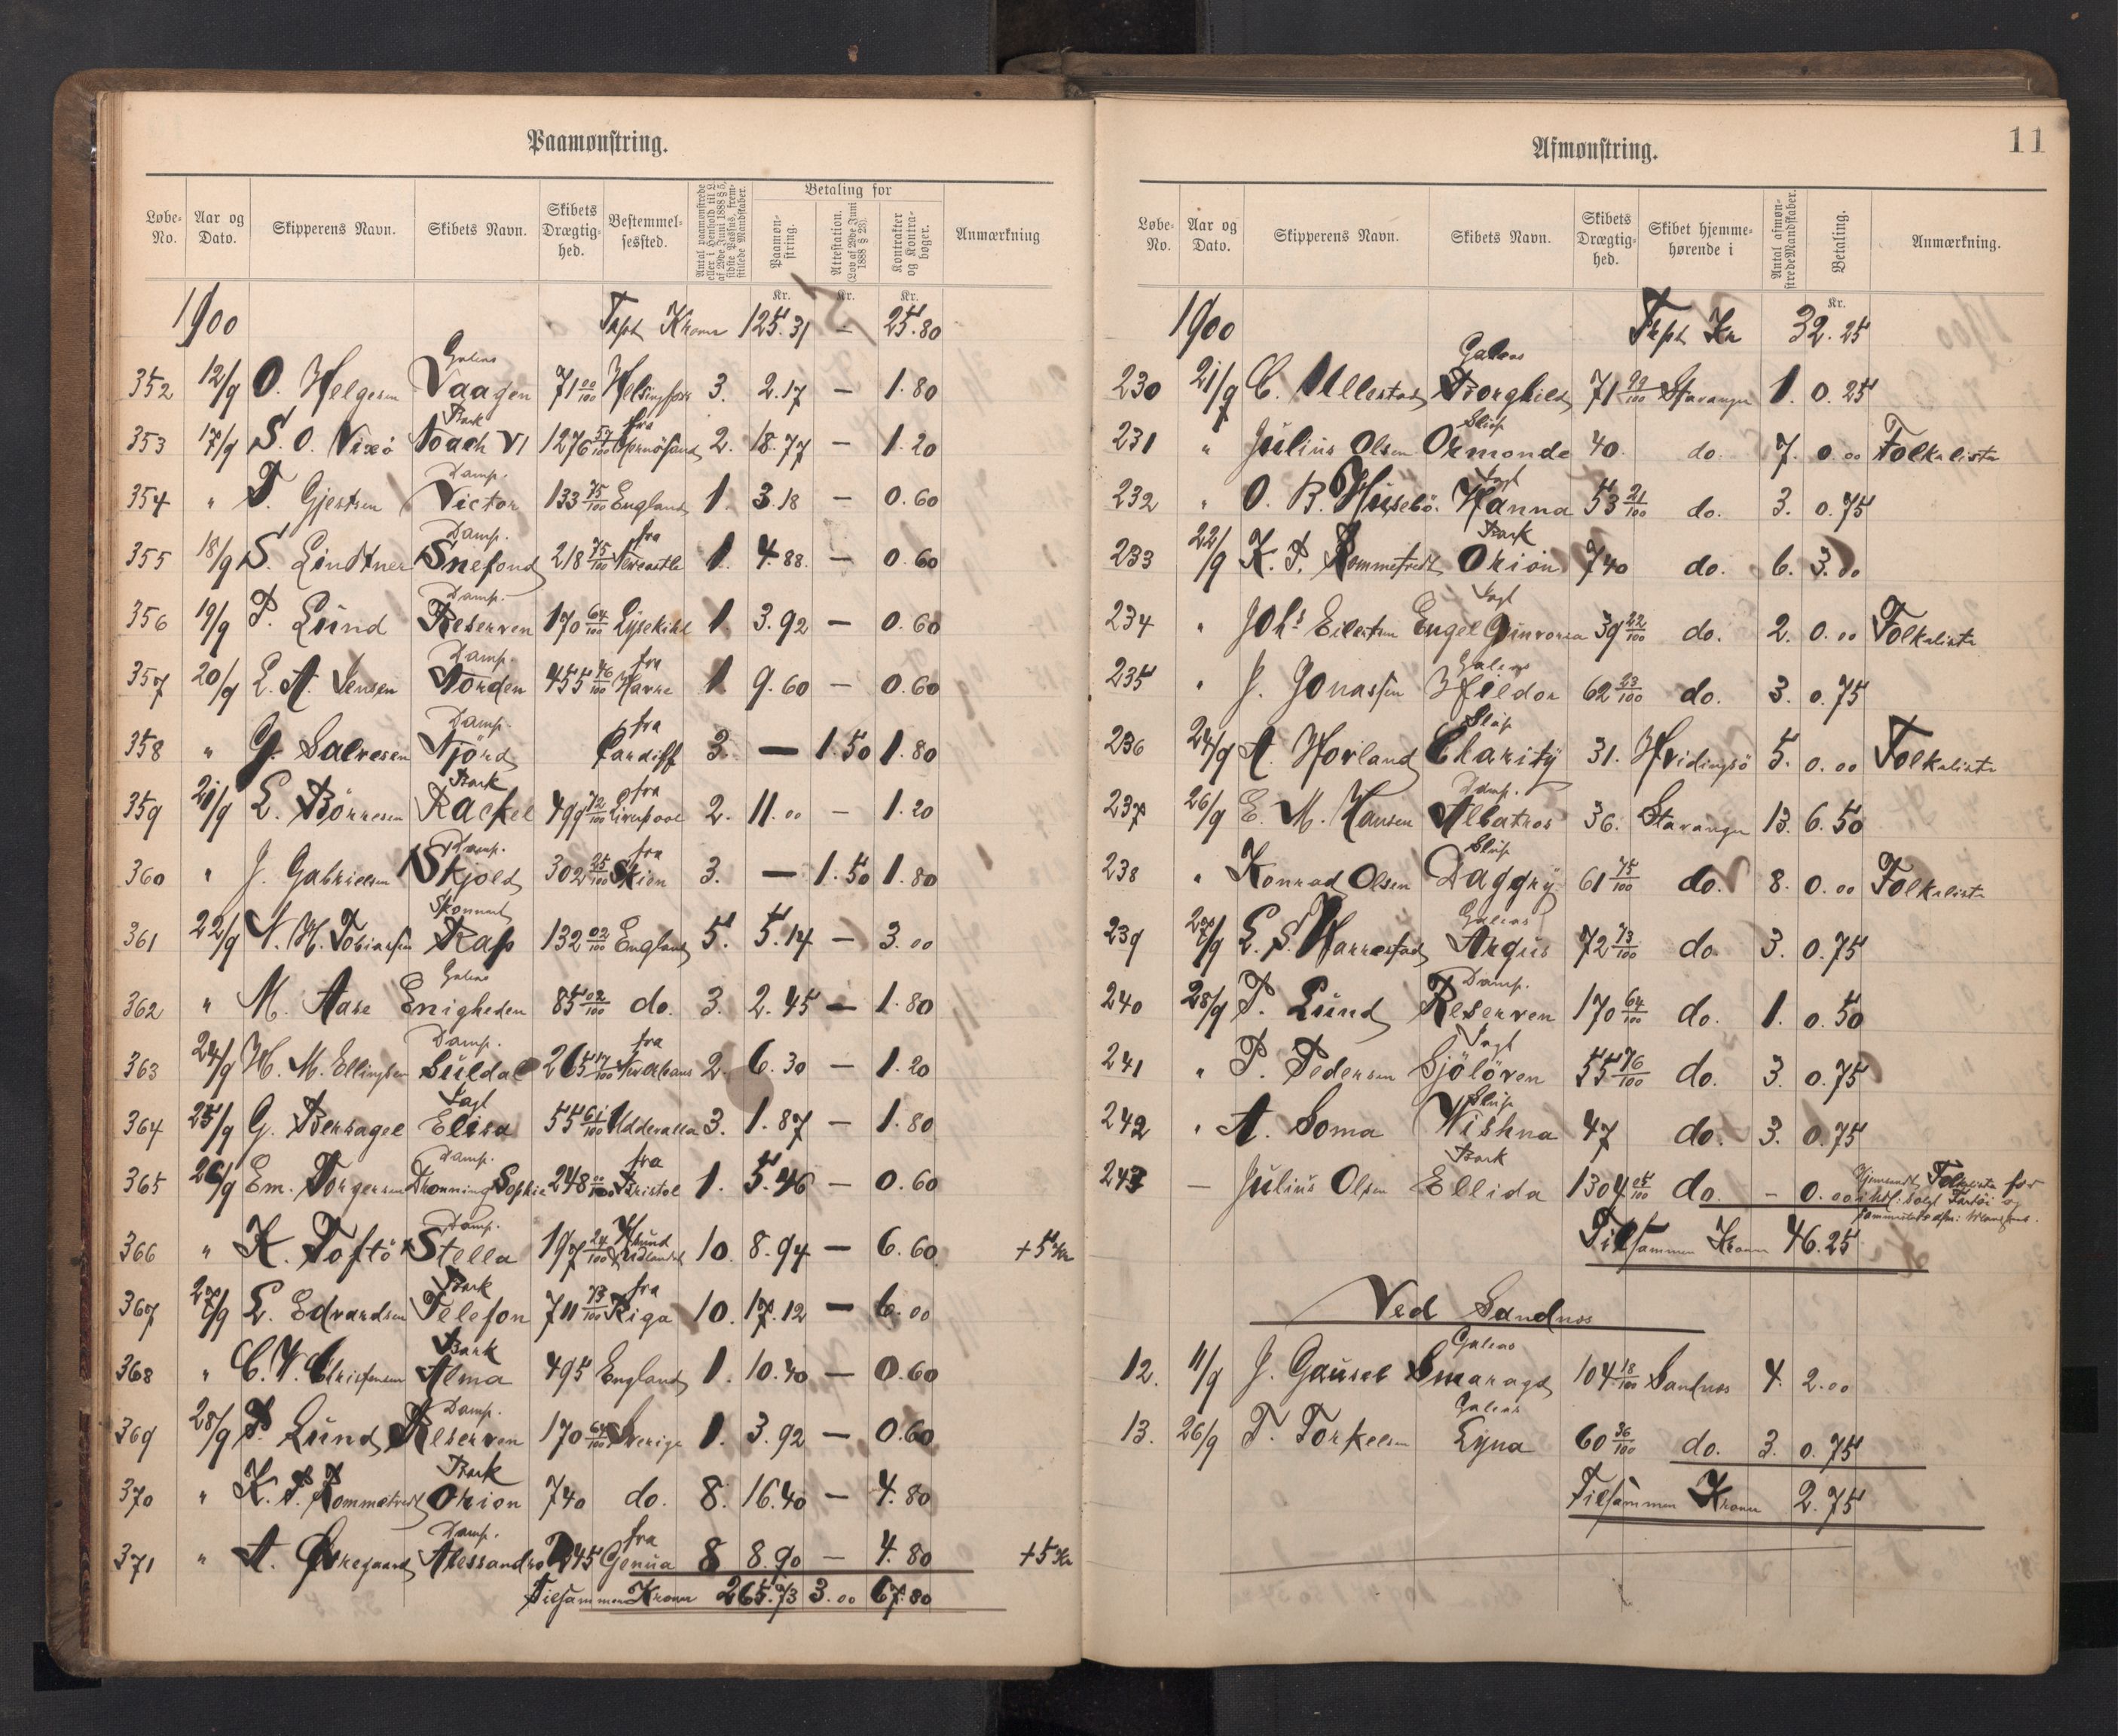 Paamønstring.
Løbe-No. Aar og Dato. Skipperens Navn. Skibets Navn. Skibets Drægtighed. Bestemmelsessted. Antal paamønstrede eller i Henhold til L. af 29de Juni 1888 § 5, sidste Passus, fremstillede Mandskaber. Betaling for Paamønstring. Attestation. (Lov af 29de Juni 1888 § 23). Kontrakter og Kontrabøger. Anmærkning
Kr. Kr. Kr.
1900 Trpt Kroner 125.31 — 25.80
352 12/9 O. Helgesen Galeas Vaagen 71 00/100 Helsingfors 3. 2.17 — 1.80
353 17/9 S. O. Vixö Bark Noach VI 1276 57/100 fra 2. 18.77 — 1.20
354 " T. Gjertsen Damp. Victor 133 75/100 England 1. 3.18 — 0.60
355 18/9 S. Lindtner Damp. Snefond 218 75/100 fra Newcastle 1. 4.88. — 0.60
356 19/9 P. Lund Damp. Reserven 170 64/100 Lysekihl 1. 3.92 — 0.60
357 20/9 L. A. Jensen Damp. Norden 455 46/100 fra Havre 1 9.60 — 0.60
358 " G. Salvesen Damp. Njörd fra Cardiff 3. — 1.50 1.80
359 21/9 L. Börresen Bark Rackel 499 72/100 fra Liverpool 2. 11.00 — 1.20
360 " J. Gabrielsen Damp. Skjold 302 25/100 fra Skien 3. — 1.50 1.80
361 22/9 N. H. Tobiassen Skonnert Rap 132 02/100 England 5. 5.14 — 3.00
362 " M. Aare Galeas Enigheden 85 02/100 do. 3. 2.45 — 1.80
363 24/9 H. M. Ellingsen Damp. Suldal 265 17/100 fra 2. 6.30 — 1.20
364 25/9 G. Bersagel Jagt Elisa 55 61/100 Uddevalla 3. 1.87 — 1.80
365 26/9 Em. Torgersen Damp. Dronning Sophie 248 00/100 fra Bristol 1. 5.46 — 0.60
366 " K. Toftö Damp. Stella 197 24/100 10. 8.94 — 6.60 +5 Kr
367 27/9 L. Edvardsen Bark Telefon 711 73/100 fra Riga 10. 17.12 — 6.00
368 " C. V. Christensen Bark Alma 495 England 1. 10.40 — 0.60
369 28/9 P. Lund Damp. Reserven 170 64/100 Sverige 1. 3.92 — 0.60
370 " K. P. Rommetvedt Bark Orion 740 do. 8. 16.40 — 4.80
371 " A. Damp. Alessandro 245 fra Genua 8 8.90 — 4.80 +5 Kr
Tilsammen Kroner 265.73 3.00 67.80
Afmønstring.
11
Løbe-No. Aar og Dato. Skipperens Navn. Skibets Navn. Skibets Drægtighed. Skibet hjemmehørende i Antal afmønstrede Mandskaber. Betaling. Anmærkning.
Kr.
1900 Trpt Kr 32.25
230 21/9 C. Ullestad Galeas Borghild 71 99/100 Stavanger 1. 0.25
231 " Julius Olsen Slup Ormonde 40. do. 7. 0.00 Folkeliste
232 " O. B. Husebö. Jagt Hanna 53 21/100 do. 3. 0.75
233 22/9 K. P. Rommetvedt Bark Orion 740 do. 6. 3.00
234 " Johs Eilertsen Jagt Engel Gunvorea 39 22/100 do. 2. 0.00 Folkeliste
235 " J. Jonassen Galeas Hildor 62 23/100 do. 3. 0.75
236 24/9 A. Horland Slup Charity 31. Hvidingsö 5. 0.00 Folkeliste
237 26/9 E. M. Hansen Damp. Albatros 36. Stavanger 13. 6.50
238 " Konrad Olsen Slup Daggry 61 75/100 do. 8. 0.00 Folkeliste
239 27/9 L. S. Harrestad Galeas Argus 72 73/100 do 3. 0.75
240 28/9 P. Lund Damp. Reserven 170 64/100 do. 1. 0.50
241 " P. Pedersen Jagt Sjölöven 55 76/100 do. 3. 0.75
242 " A. Soma Slup Wishna 47 do. 3. 0.75
243 — Julius Olsen Bark Ellida 1304 05/100 do. - 0.00 Hjemsendt Folkeliste for
Tilsammen Kroner 46.25
Ved Sandnes
12. 11/9 J. Gausel Galeas Smaragd 104 18/100 Sandnes 4. 2.00
13. 26/9 T. Torkelsen Galeas Lyna 60 36/100 do. 3. 0.75
Tilsammen Kroner 2.75